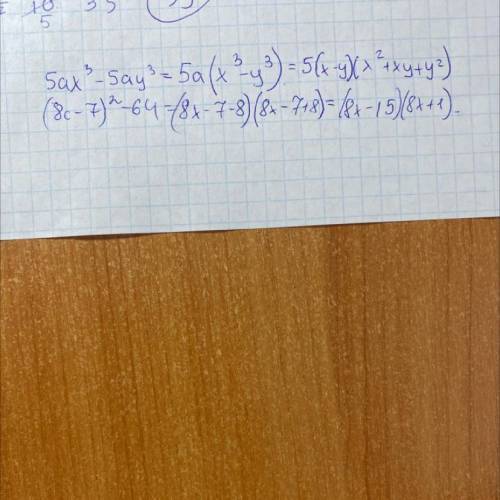 10
5 35
5ax³-5ay³=5a(x³-y³)=5(x-y)(x²+xy+y²)
(8c-7)²-64=(8x-7-8)(8x-7+8)=(8x-15)(8x+1).